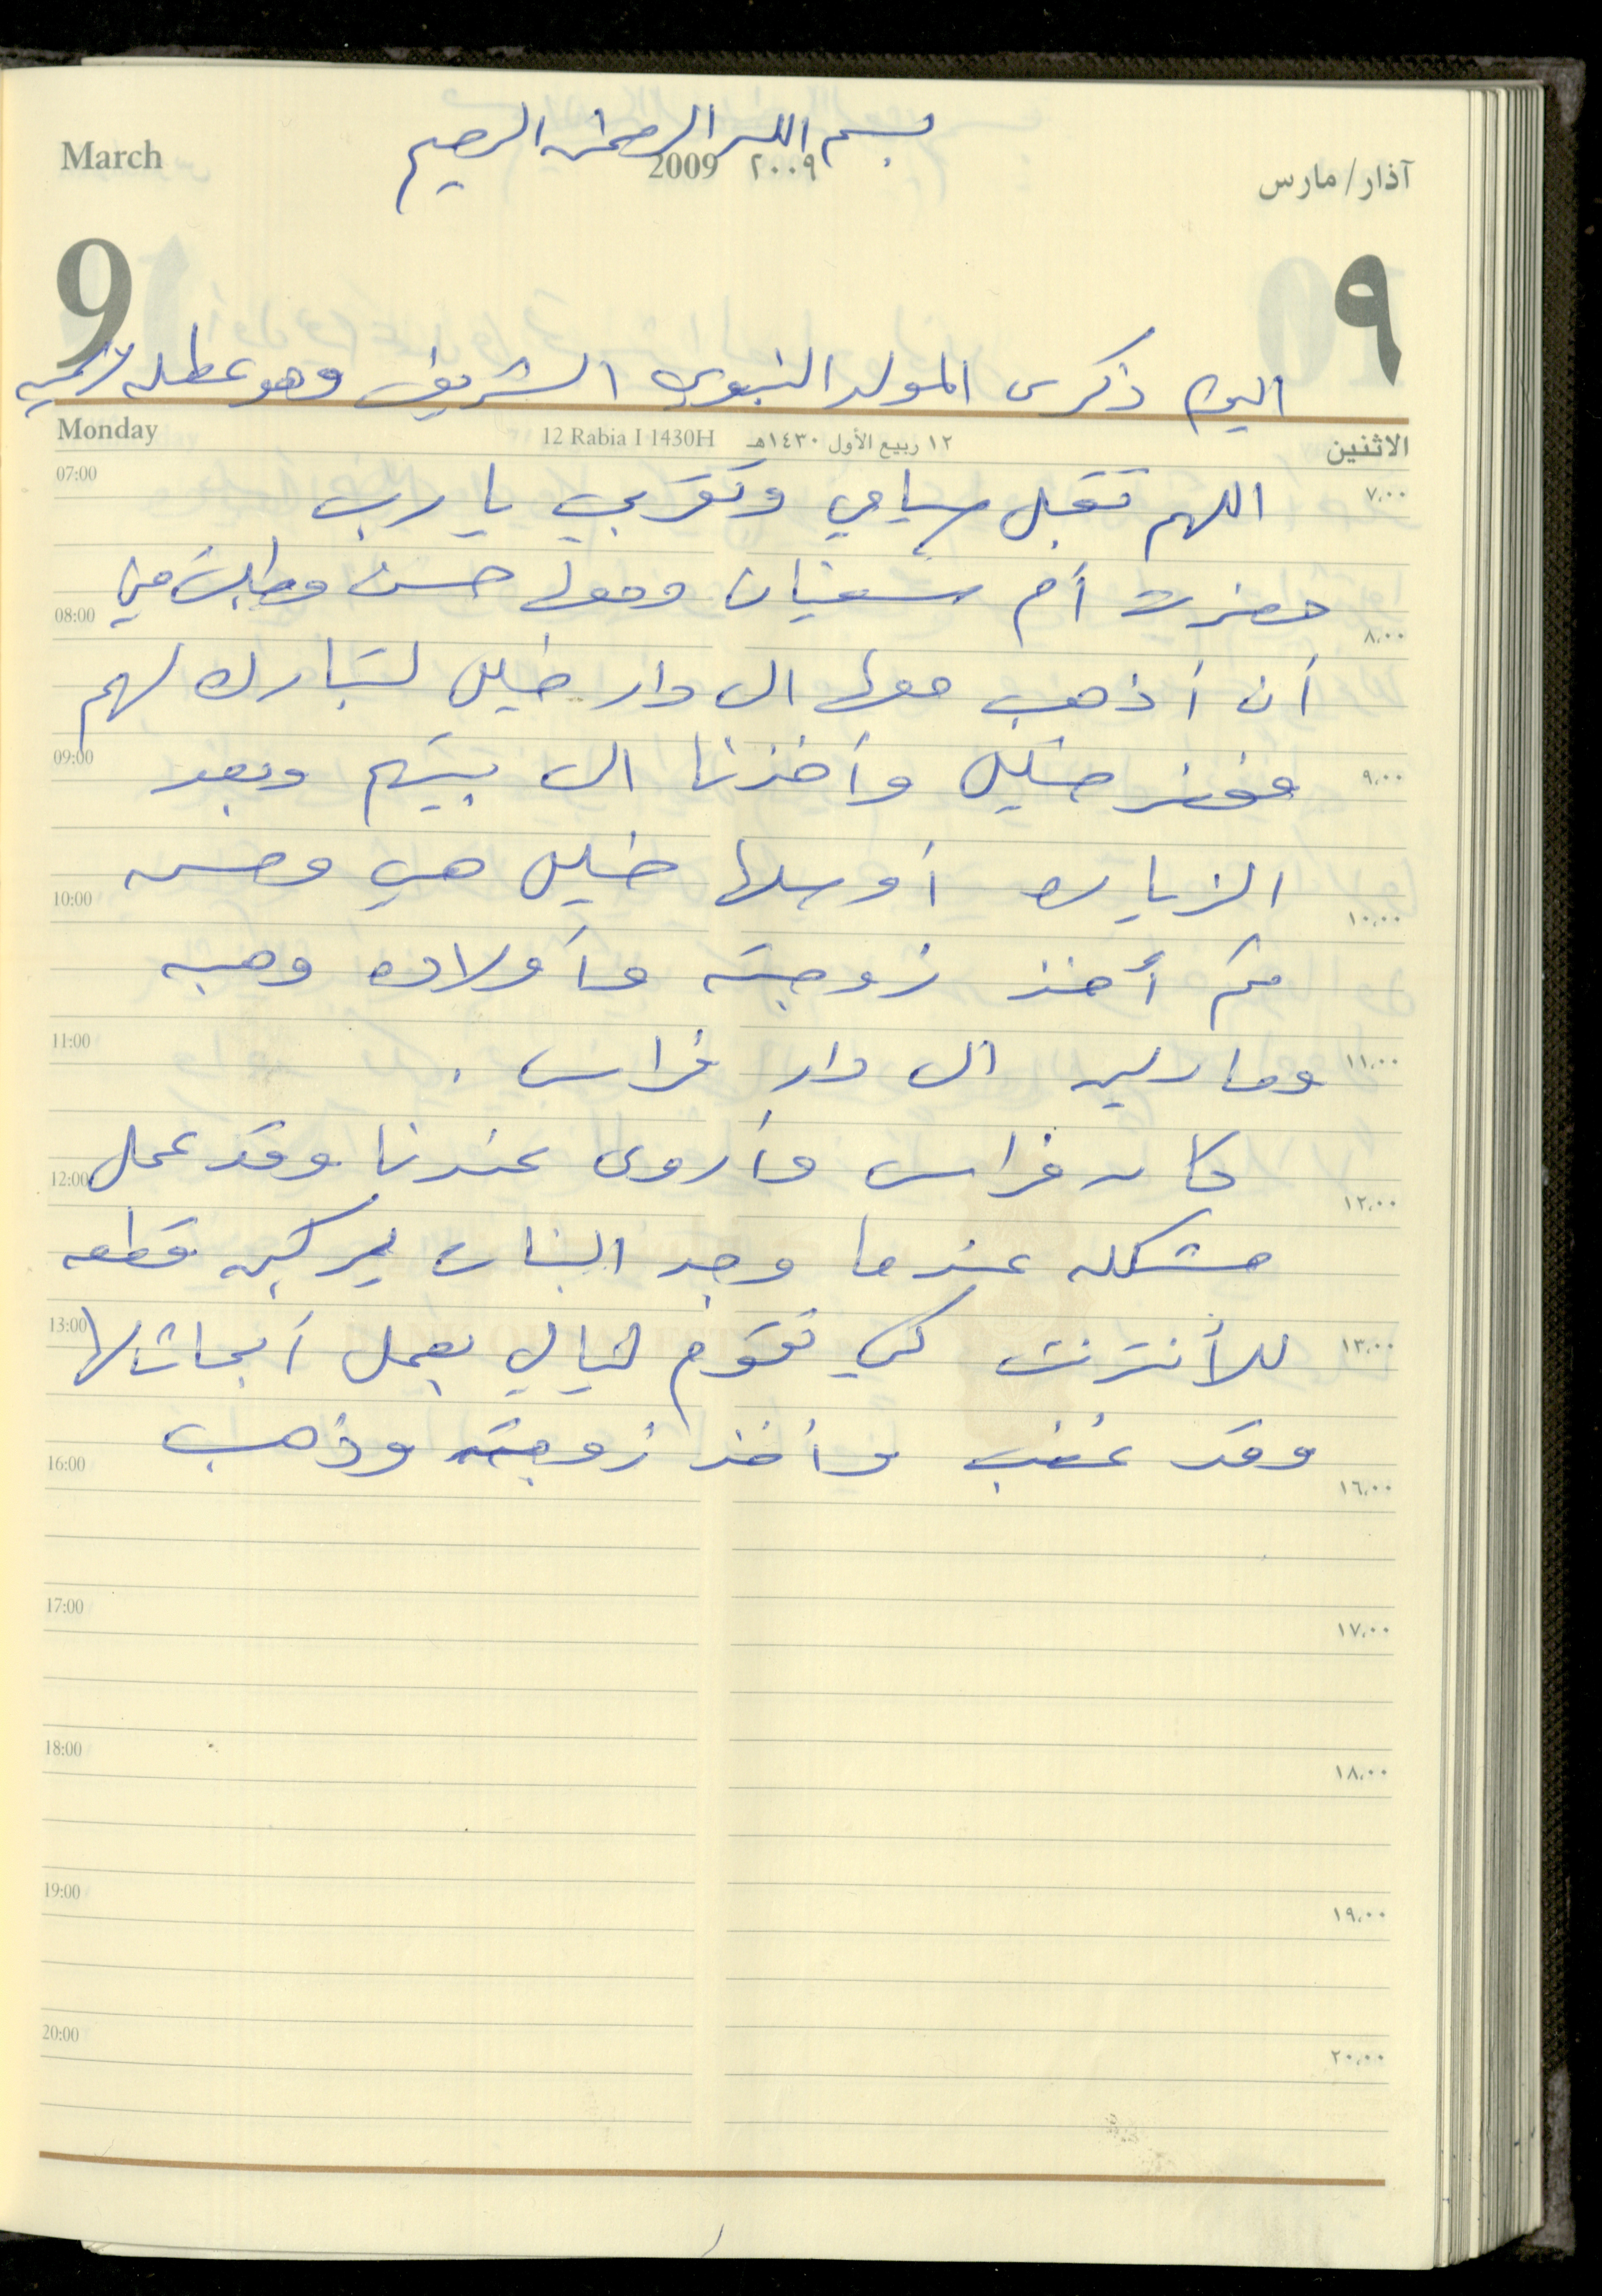 بسم الله الرحمن الرحيم
March 2009 ٢٠٠٩ آذار/مارس
9 ٩
اليوم ذكرى المولد النبوي الشريف وهو عطله رسميه
Monday 12 Rabia I 1430H ١٢ ربيع الأول ١٤٣٠هـ الاثنين
07:00 ٧،٠٠
اللهم تقبل صيامي وتقربي يا رب
حضرت أم سفيان ومعها حسن وطلبت مني
08:00 ٨،٠٠
أن أذهب معها الى دار خليل لتبارك لهم
09:00 ٩،٠٠
فحضر خليل وأخذنا الى بيتهم وبعد
الزياره أوصلها خليل هي وحسن
10:00 ١٠،٠٠
ثم أخذ زوجته وأولاده وهبه
11:00 ١١،٠٠
وماريه الى دار فراس .
كان فراس وأروى عندنا وقد عمل
12:00 ١٢،٠٠
مشكله عندما وجد البنات يركبن قطعه
13:00 ١٣،٠٠
للأنترنت كي تقوم ليالي بعمل أبحاثها
وقد غضب وأخذ زوجته وذهب
16:00 ١٦،٠٠
17:00 ١٧،٠٠
18:00 ١٨،٠٠
19:00 ١٩،٠٠
20:00 ٢٠،٠٠